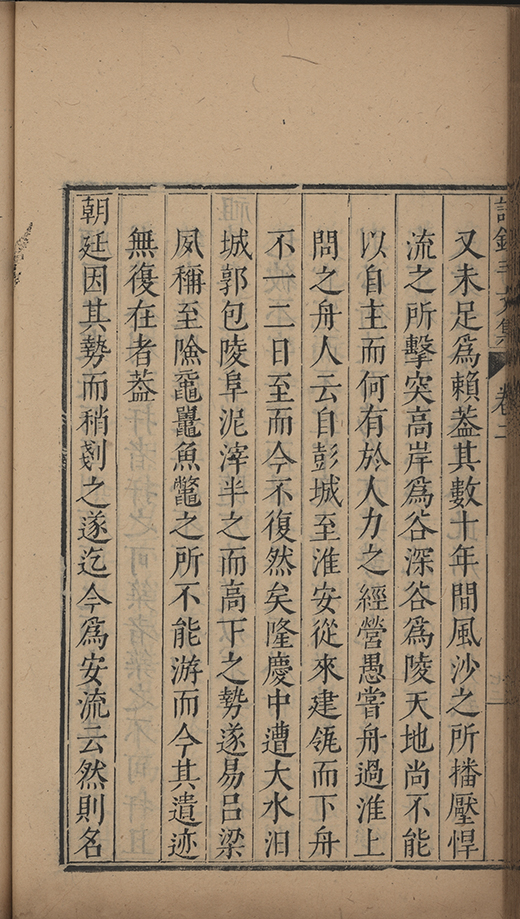 許鍾斗文集 卷二
又未足爲賴葢其數十年間風沙之所播壓悍
流之所擊突高岸爲谷深谷爲陵天地尚不能
以自主而何有於人力之經營愚嘗舟過淮上
問之舟人云自彭城至淮安從來建瓴而下舟
不一二日至而今不復然矣隆慶中遭大水汩
城郭包陵阜泥滓半之而高下之勢遂易呂梁
夙稱至險黿鼉魚鼈之所不能游而今其遺迹
無復在者葢
朝廷因其勢而稍剗之遂迄今爲安流云然則名